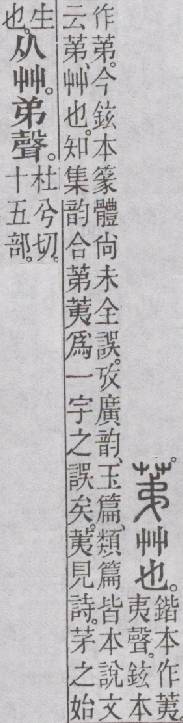 苐艸也。鍇本作荑
夷聲。鉉本
作苐。今鉉本篆體尙未全誤。攷廣韵、玉篇、類篇皆本說文
云苐、艸也。知集韵合苐荑爲一字之誤矣。荑見詩。茅之始
生也。从艸。弟聲。杜兮切。十五部。